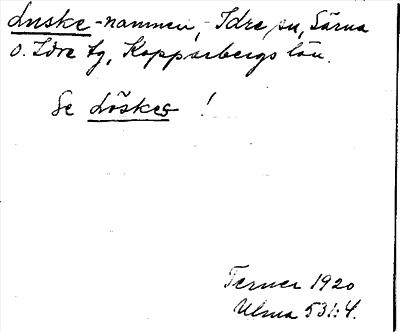 Luske-namnen, Idre sn, Särna
o. Idre tg, Kopparbergs län.
Se Löskes !
Terner 1920
Ulma 531:4.